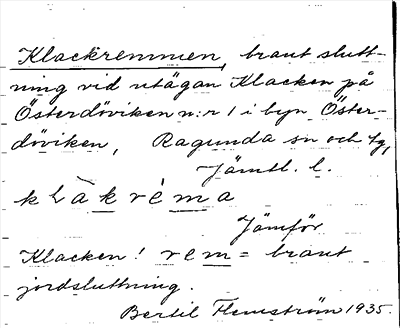 Klackremmen, brant slutt-
ning vid utägan Klacken på
Österdöviken n:r 1 i byn Öster-
döviken, Ragunda sn och tg,
Jämtl. l.
klàkrèma
Jämför
Klacken! rem = brant
jordsluttning.
Bertil Flemström 1935.